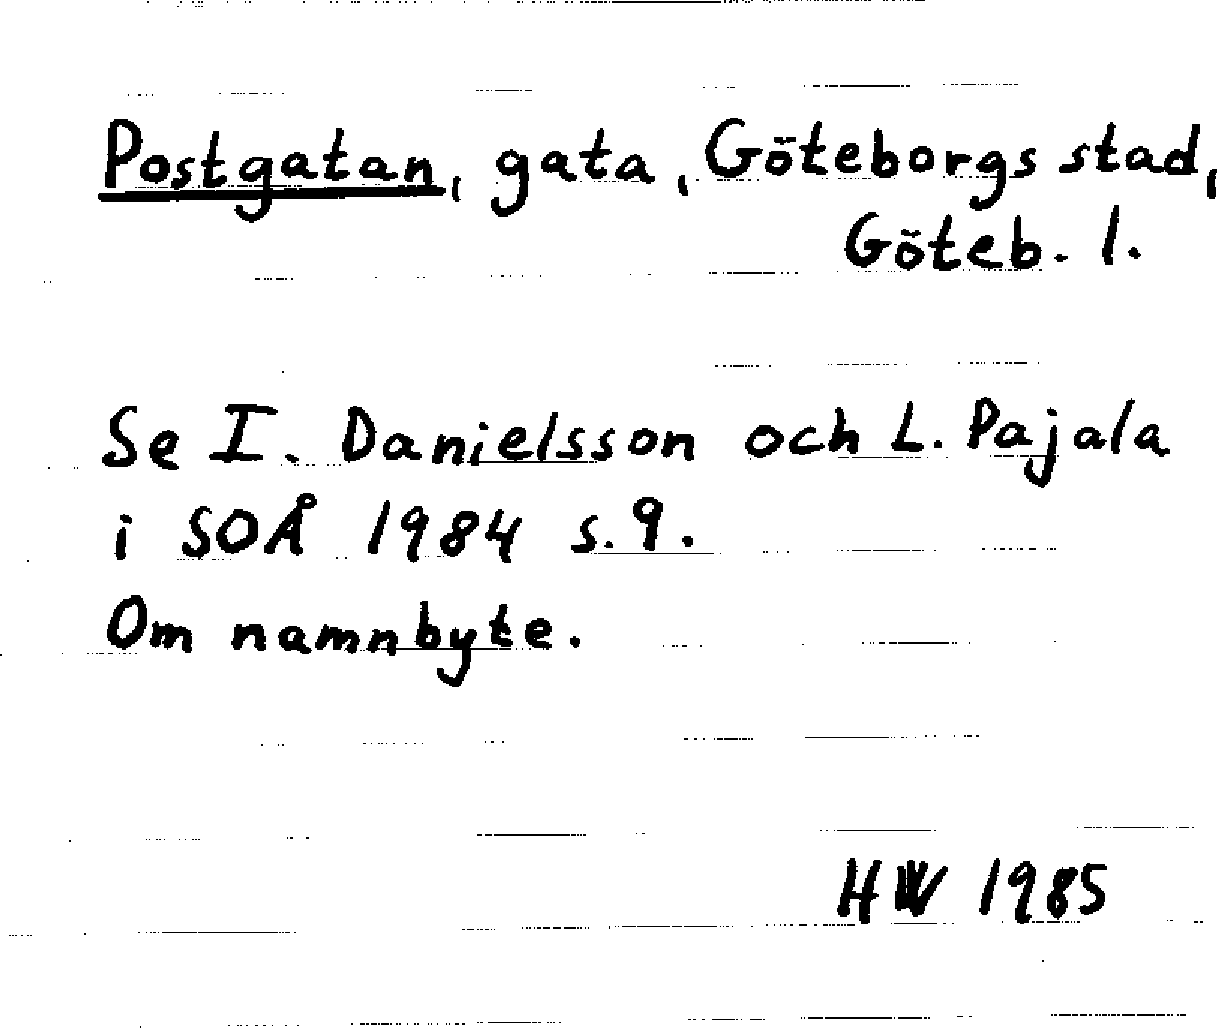 Postgatan, gata, Göteborgs stad,
Göteb. l.
Se I. Danielsson och L. Pajala
i SOÅ 1984 s. 9.
Om namnbyte.
HW 1985